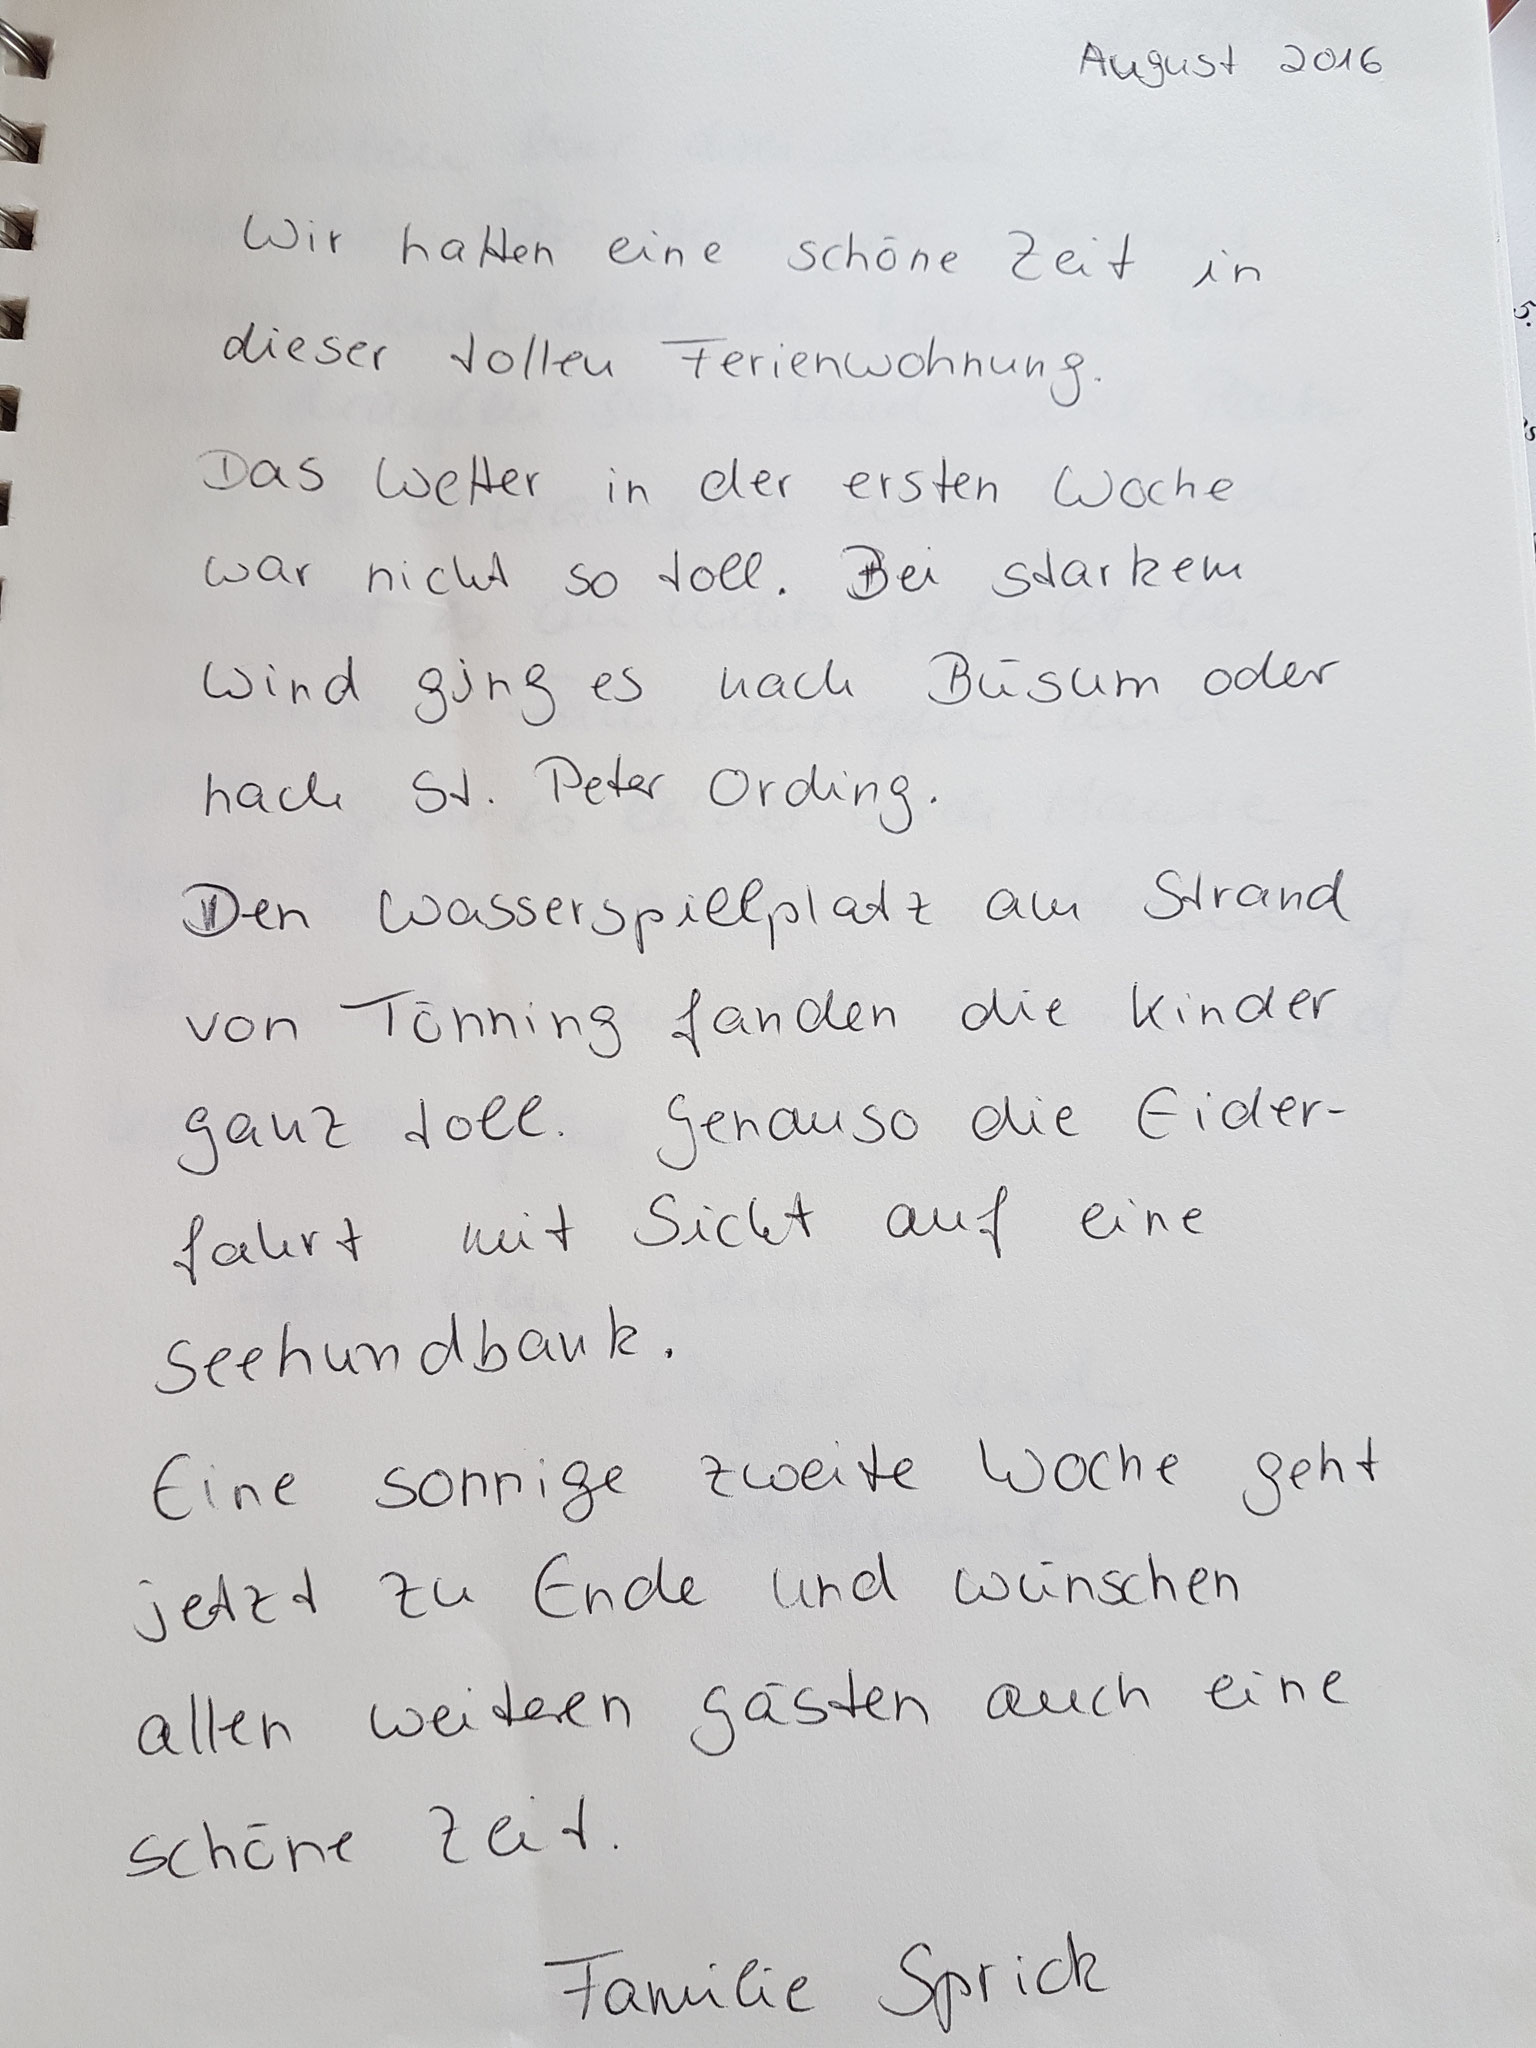 August 2016
Wir hatten eine schöne Zeit in
dieser tollen Ferienwohnung.
Das Wetter in der ersten Woche
war nicht so toll. Bei starkem
Wind ging es nach Büsum oder
nach St. Peter Ording.
Den Wasserspielplatz am Strand
von Tönning fanden die Kinder
ganz toll. Genauso die Eider-
fahrt mit Sicht auf eine
Seehundbank.
Eine sonnige zweite Woche geht
jetzt zu Ende und wünschen
allen weiteren Gästen auch eine
schöne Zeit.
Familie Sprick